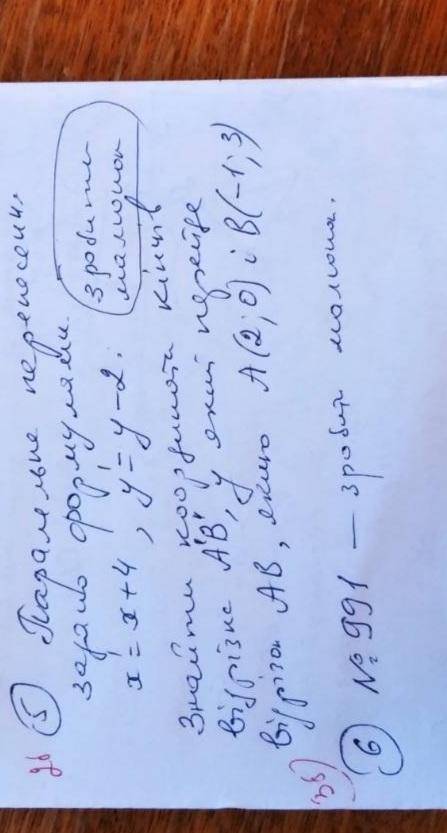 2б ⑤ Паралельне перенесення
задано формулами
x' = x+4, y' = y-2.
зробити
малюнок
Знайти координати кінців
відрізка A'B', у який перейде
відрізок AB, якщо A(2;0) і B(-1;3)
⑥ №991 — зробити малюнок.